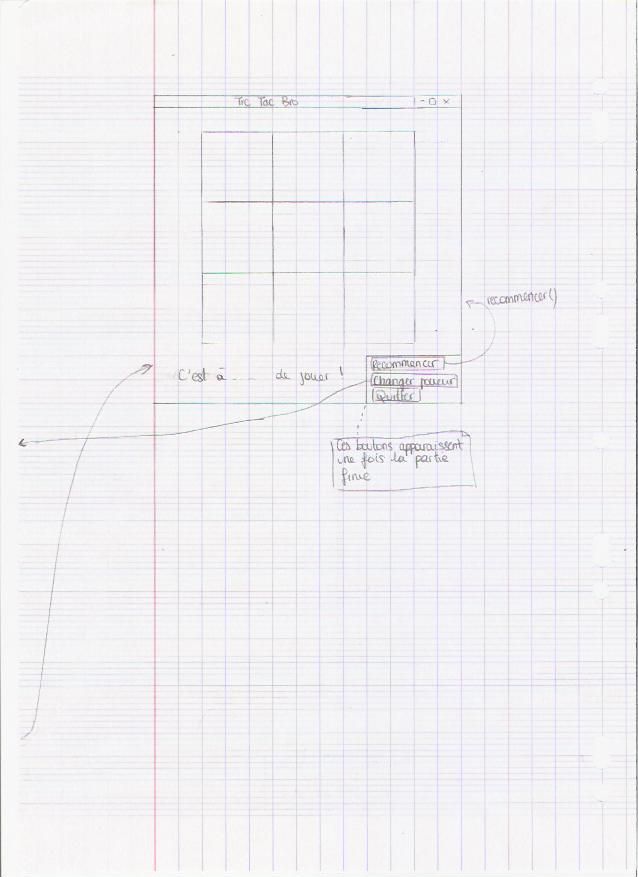 Tic Tac Bro
recommencer()
Recommencer
C'est à .... de jouer !
Changer joueur
Quitter
Ces boutons apparaissent
une fois la partie
finie